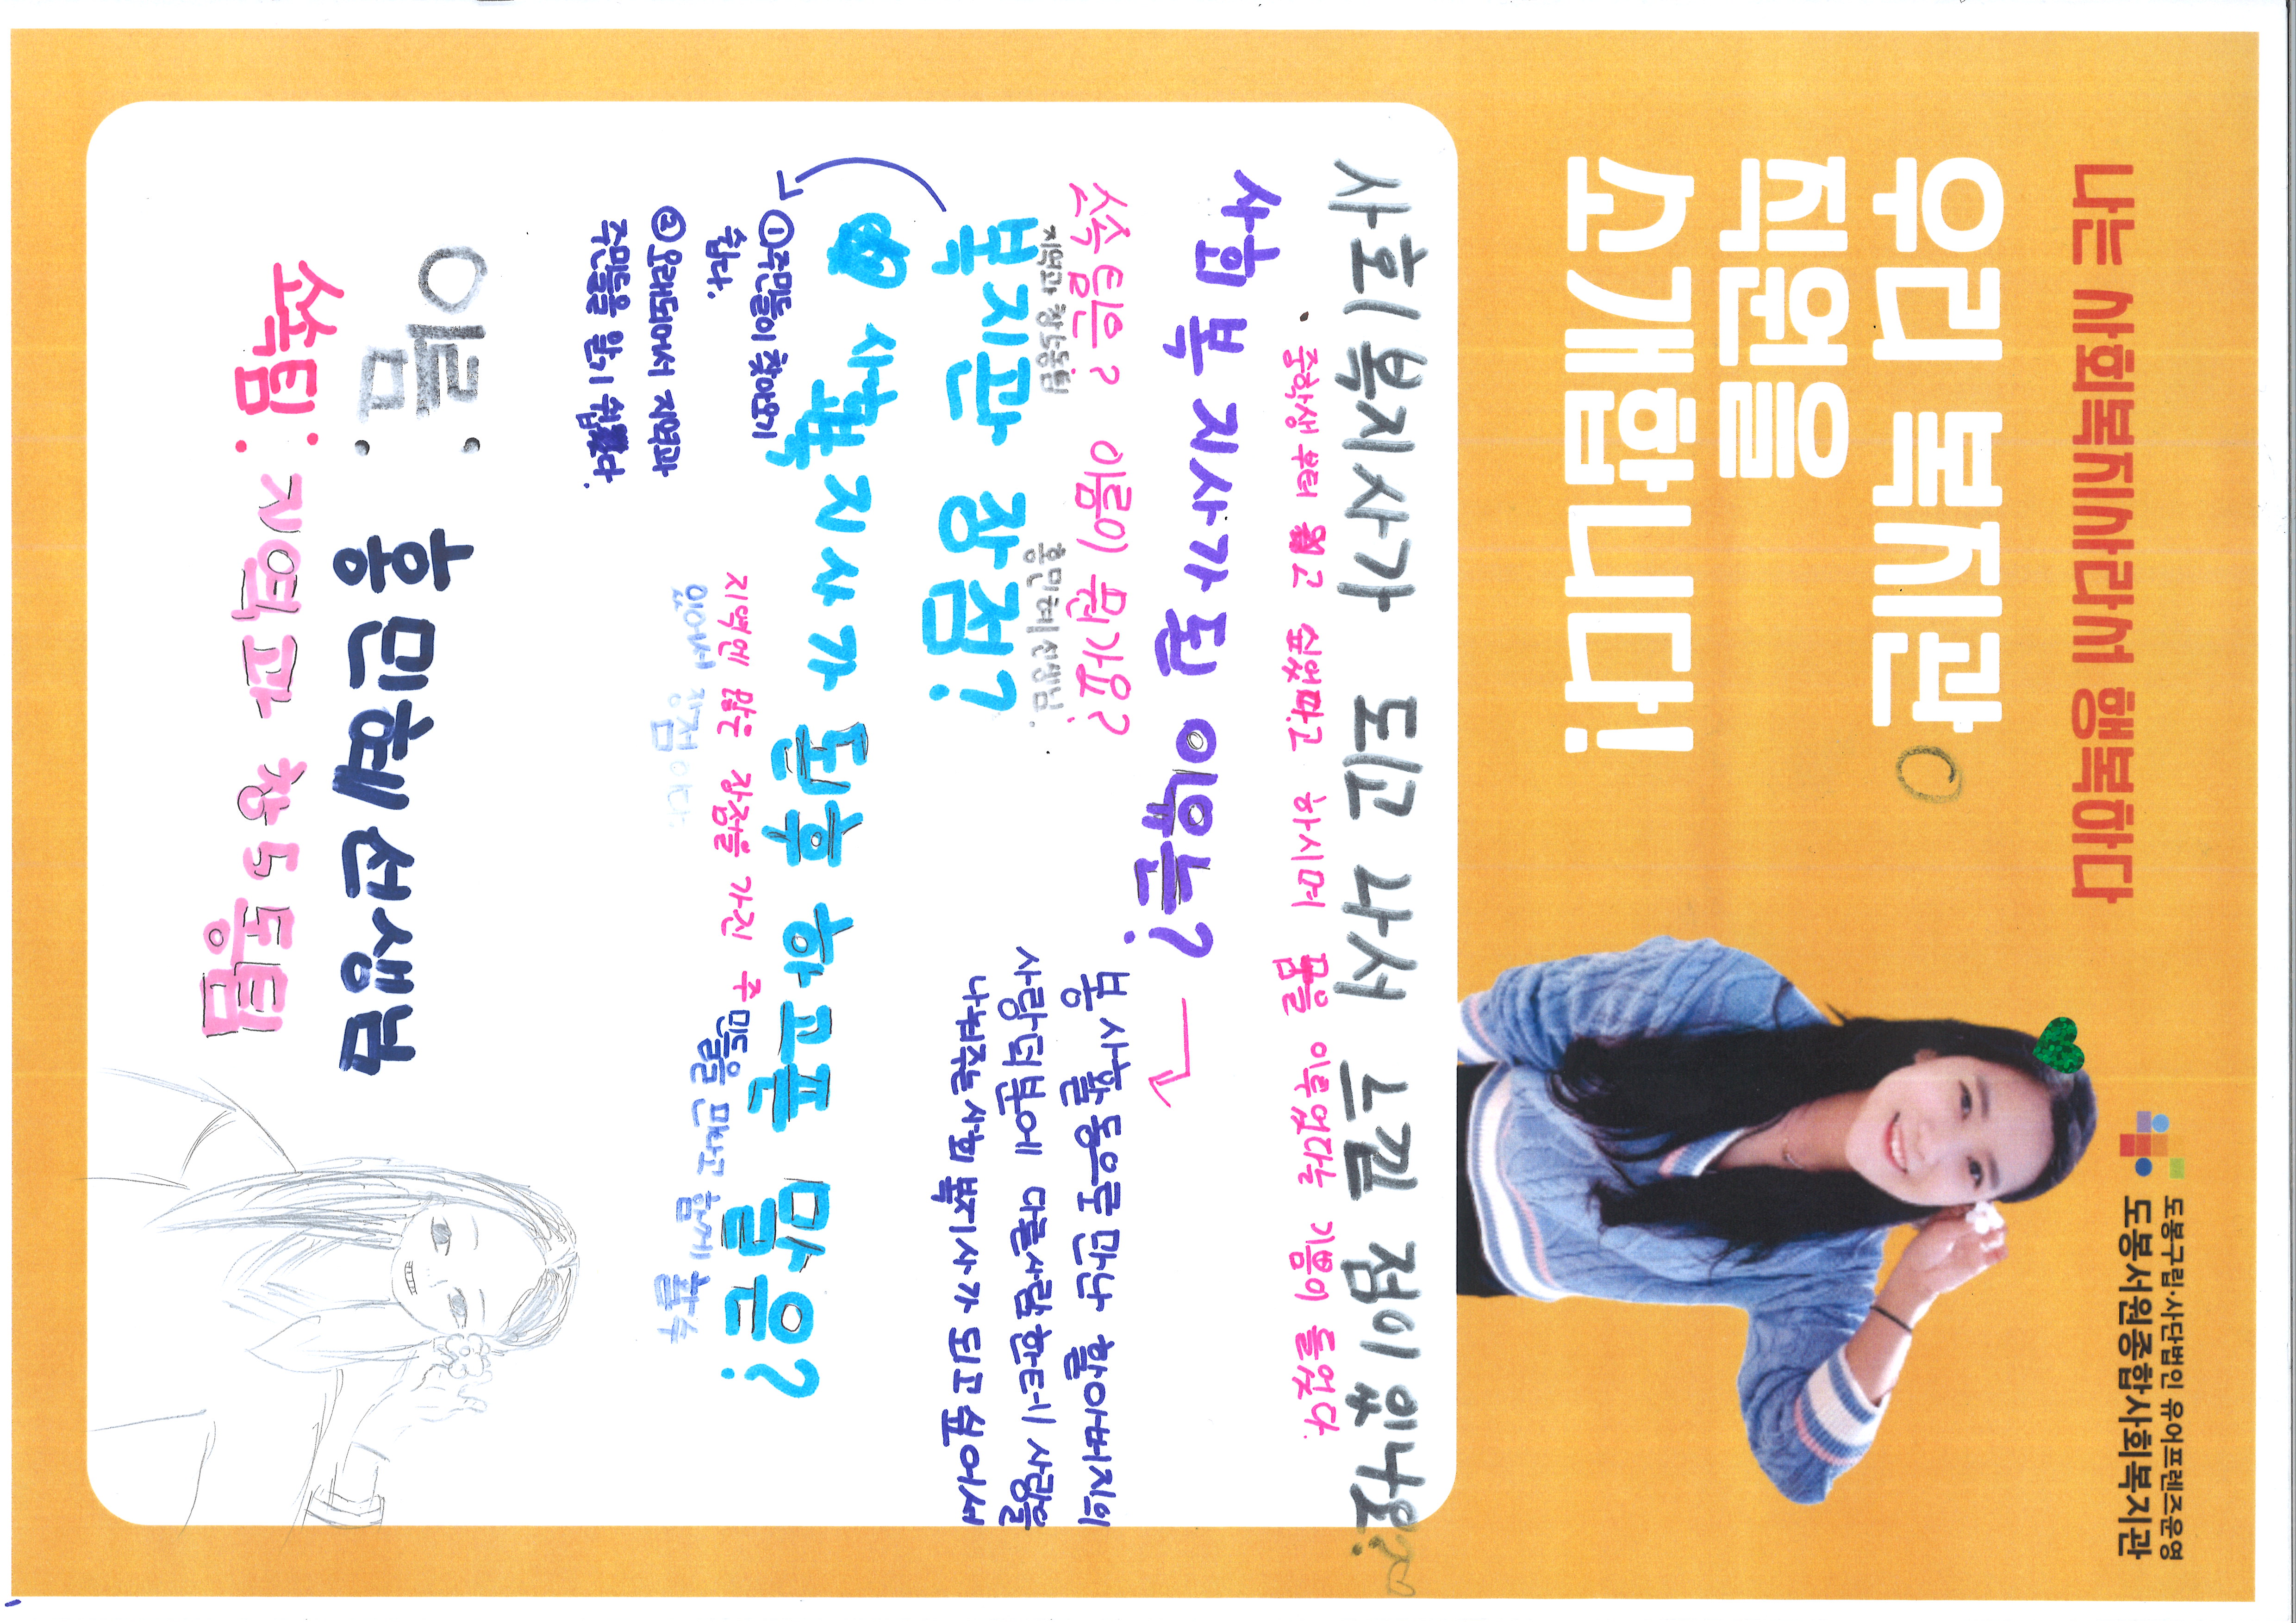 나는 사회복지사라서 행복하다
도봉구립·사단법인 유어프렌즈운영
도봉서원종합사회복지관
우리 복지관
직원을
소개합니다!
사회복지사가 되고 나서 느낀 점이 있나요?
· 중학생부터 꿈꾸고 싶었다고 하시며 꿈을 이루었다는 기쁨이 들었다.
사회복지사가 된 이유는?
봉사활동으로 만난 할아버지의
사랑덕분에 다른사람한테 사랑을
나눠주는사회복지사가 되고 싶어서
쏙팀은? 이름이 뭔가요?
지역과 창5동팀 홍민혜선생님.
복지관 장점?
①주민들이 찾아오기
쉽다.
②오래되어서 지역과
주민들을 알기 쉽다.
사회복지사가 된후 하고픈 말은?
지역엔 많은 장점을 가진 주민들을 만나고 함께 할 수
있어서 장점이다.
이름: 홍민혜선생님
쏙팀: 지역과 창5동팀